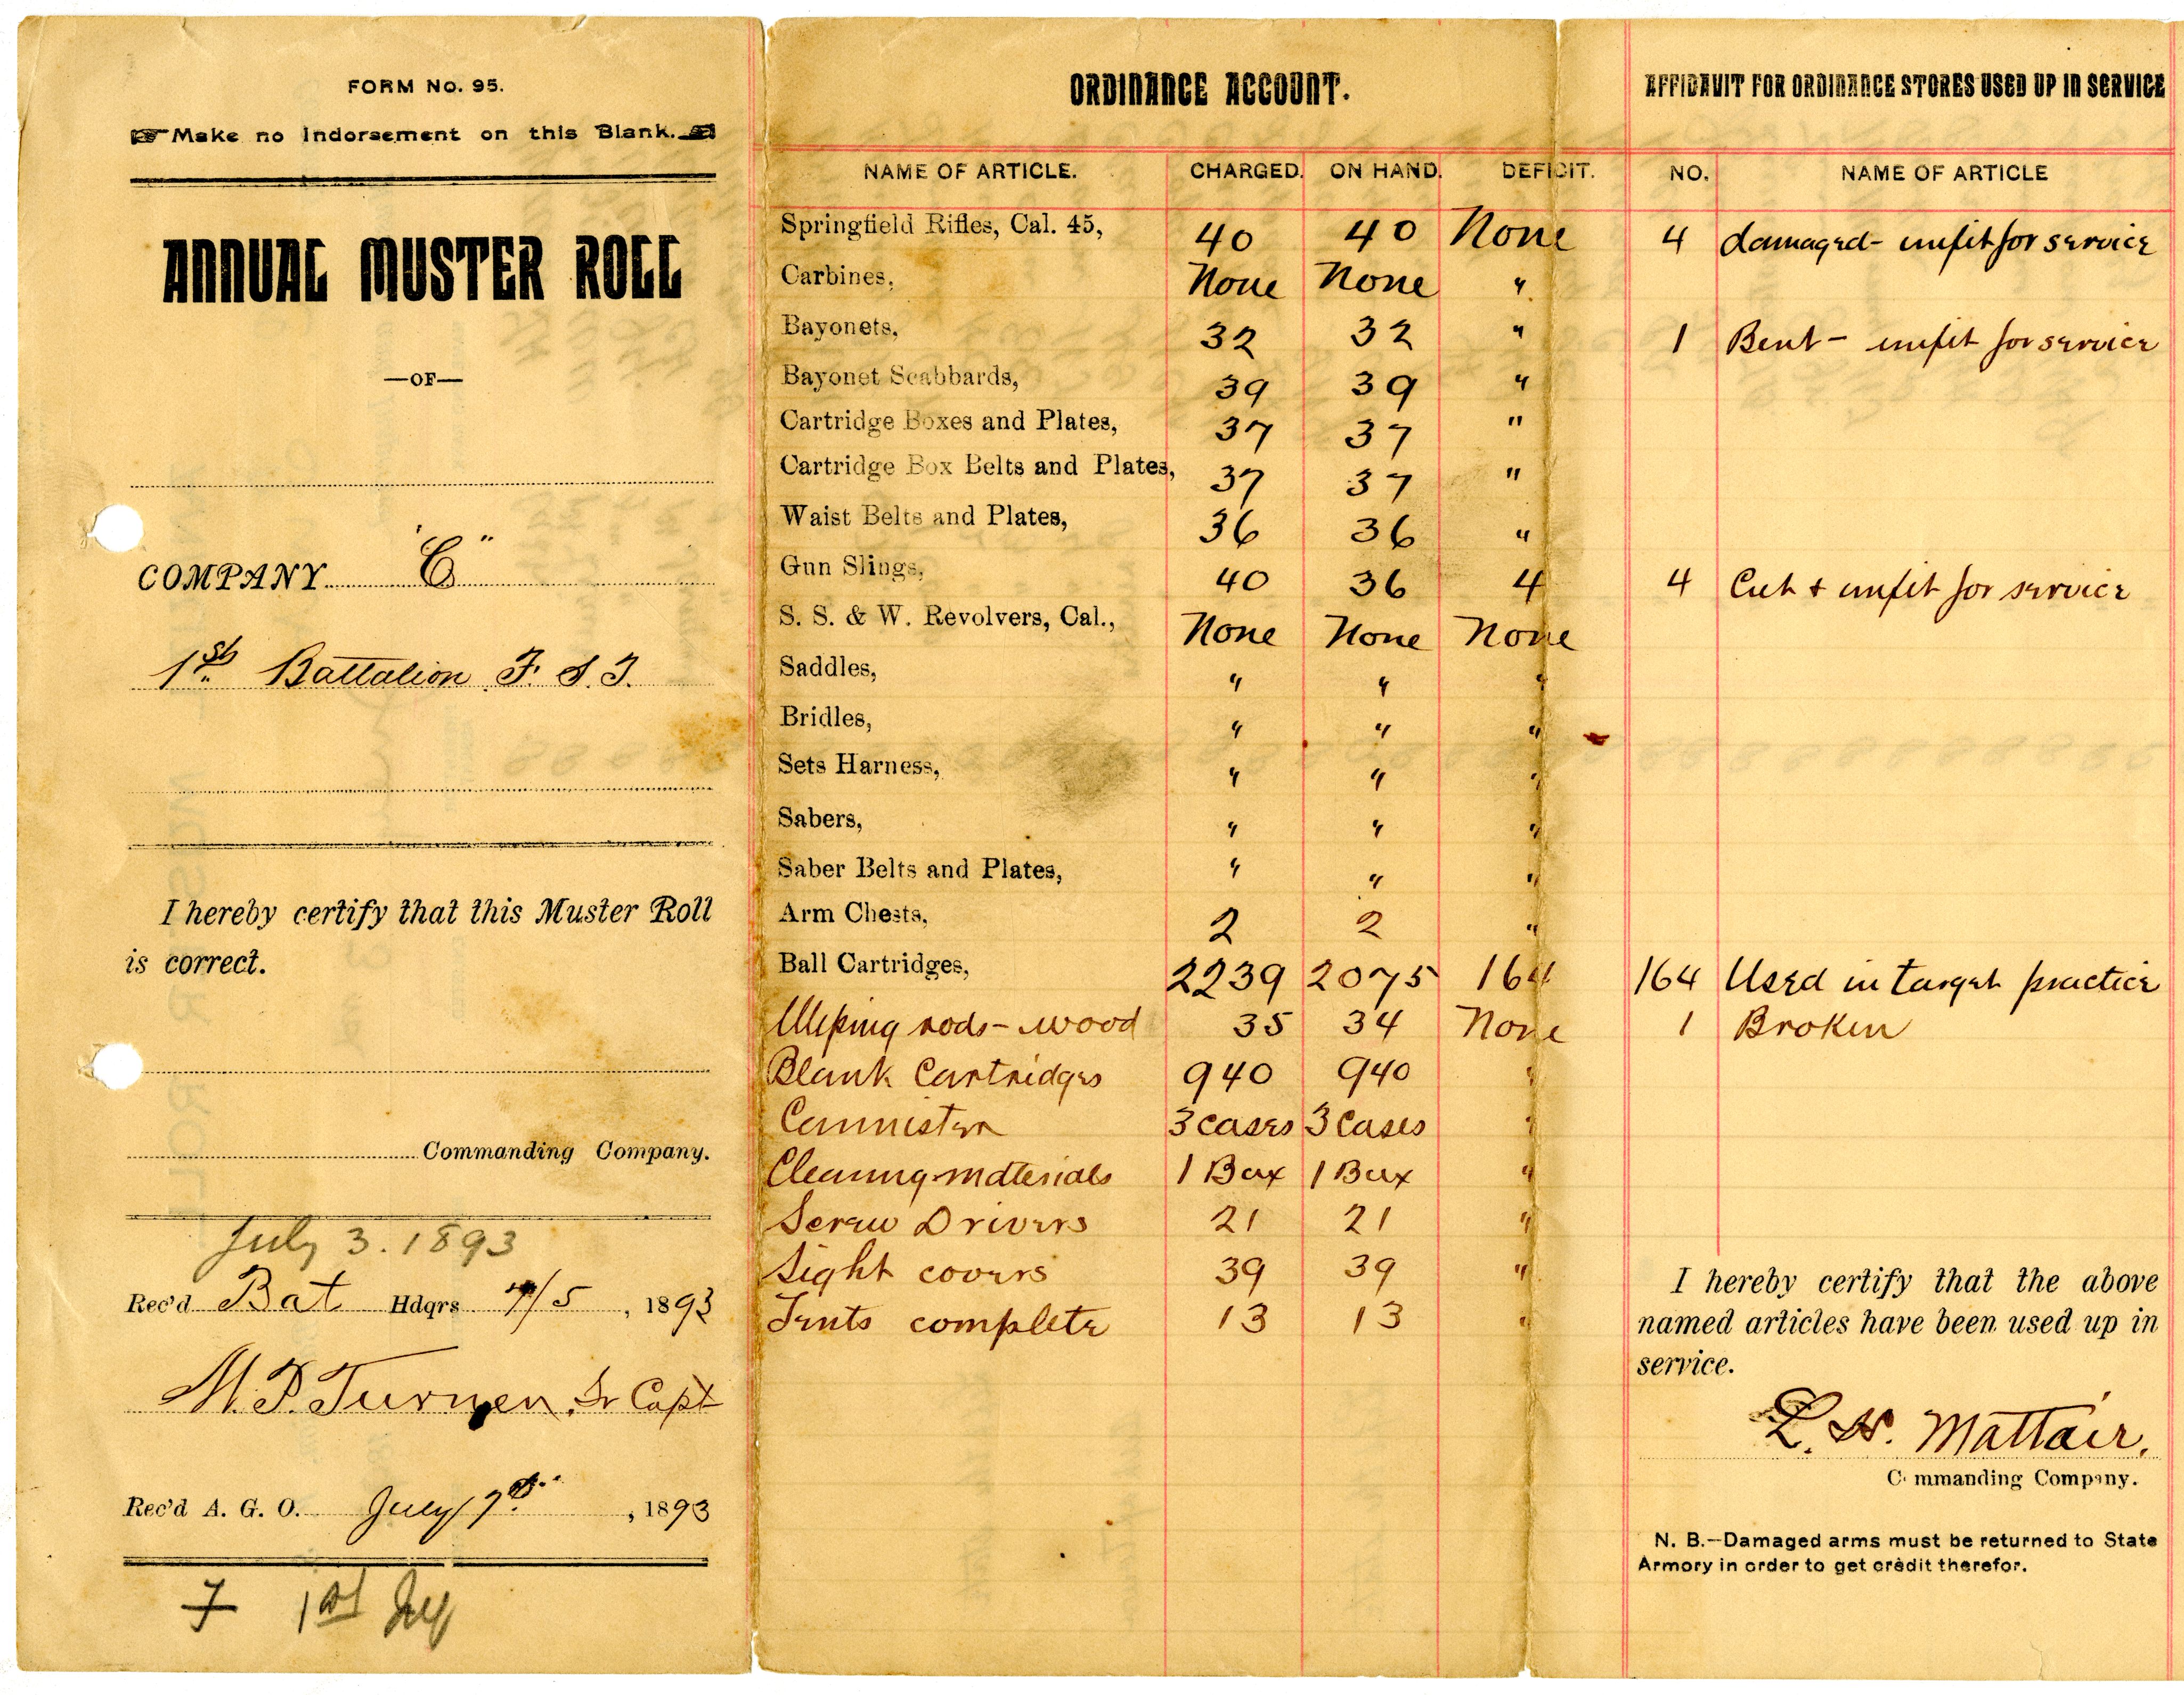 FORM No. 95.
Make no Indorsement on this Blank.
ANNUAL MUSTER ROLL
—OF—
COMPANY "C"
1st. Battalion F. S. T.
I hereby certify that this Muster Roll
is correct.
Commanding Company.
July 3. 1893
Rec'd Bat Hdqrs 7/5, 1893
M. P. Turner, Sr Capt
Rec'd A. G. O. July 7th, 1893
7 1st
ORDINANCE ACCOUNT.
NAME OF ARTICLE. CHARGED. ON HAND. DEFICIT.
Springfield Rifles, Cal. 45, 40 40 None
Carbines, None None "
Bayonets, 32 32 "
Bayonet Scabbards, 39 39 "
Cartridge Boxes and Plates, 37 37 "
Cartridge Box Belts and Plates, 37 37 "
Waist Belts and Plates, 36 36 "
Gun Slings, 40 36 4
S. S. & W. Revolvers, Cal., None None None
Saddles, " " "
Bridles, " " "
Sets Harness, " " "
Sabers, " " "
Saber Belts and Plates, " " "
Arm Chests, 2 2 "
Ball Cartridges, 2239 2075 164
Wiping rods - wood 35 34 None
Blank Cartridges 940 940 "
Cannister 3 cases 3 Cases "
Cleaning materials 1 Box 1 Box "
Screw Drivers 21 21 "
Sight covers 39 39 "
Tents complete 13 13 "
AFFIDAVIT FOR ORDINANCE STORES USED UP IN SERVICE
NO. NAME OF ARTICLE
4 damaged - unfit for service
1 Bent - unfit for service
4 Cut + unfit for service
164 Used in target practice
1 Broken
I hereby certify that the above
named articles have been used up in
service.
L. W. Mattair.
Commanding Company.
N. B.—Damaged arms must be returned to State
Armory in order to get credit therefor.